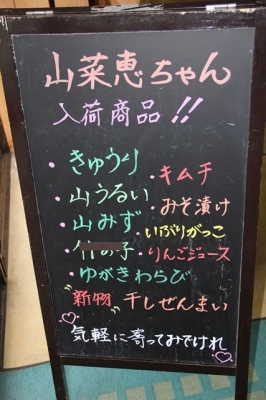 山菜恵ちゃん
入荷商品!!
・きゅうり
・キムチ
・山うるい
・みそ漬け
・山みず
・いぶりがっこ
・竹の子
・りんごジュース
・ゆがきわらび
・"新物"干しぜんまい
気軽に寄ってみでけれ